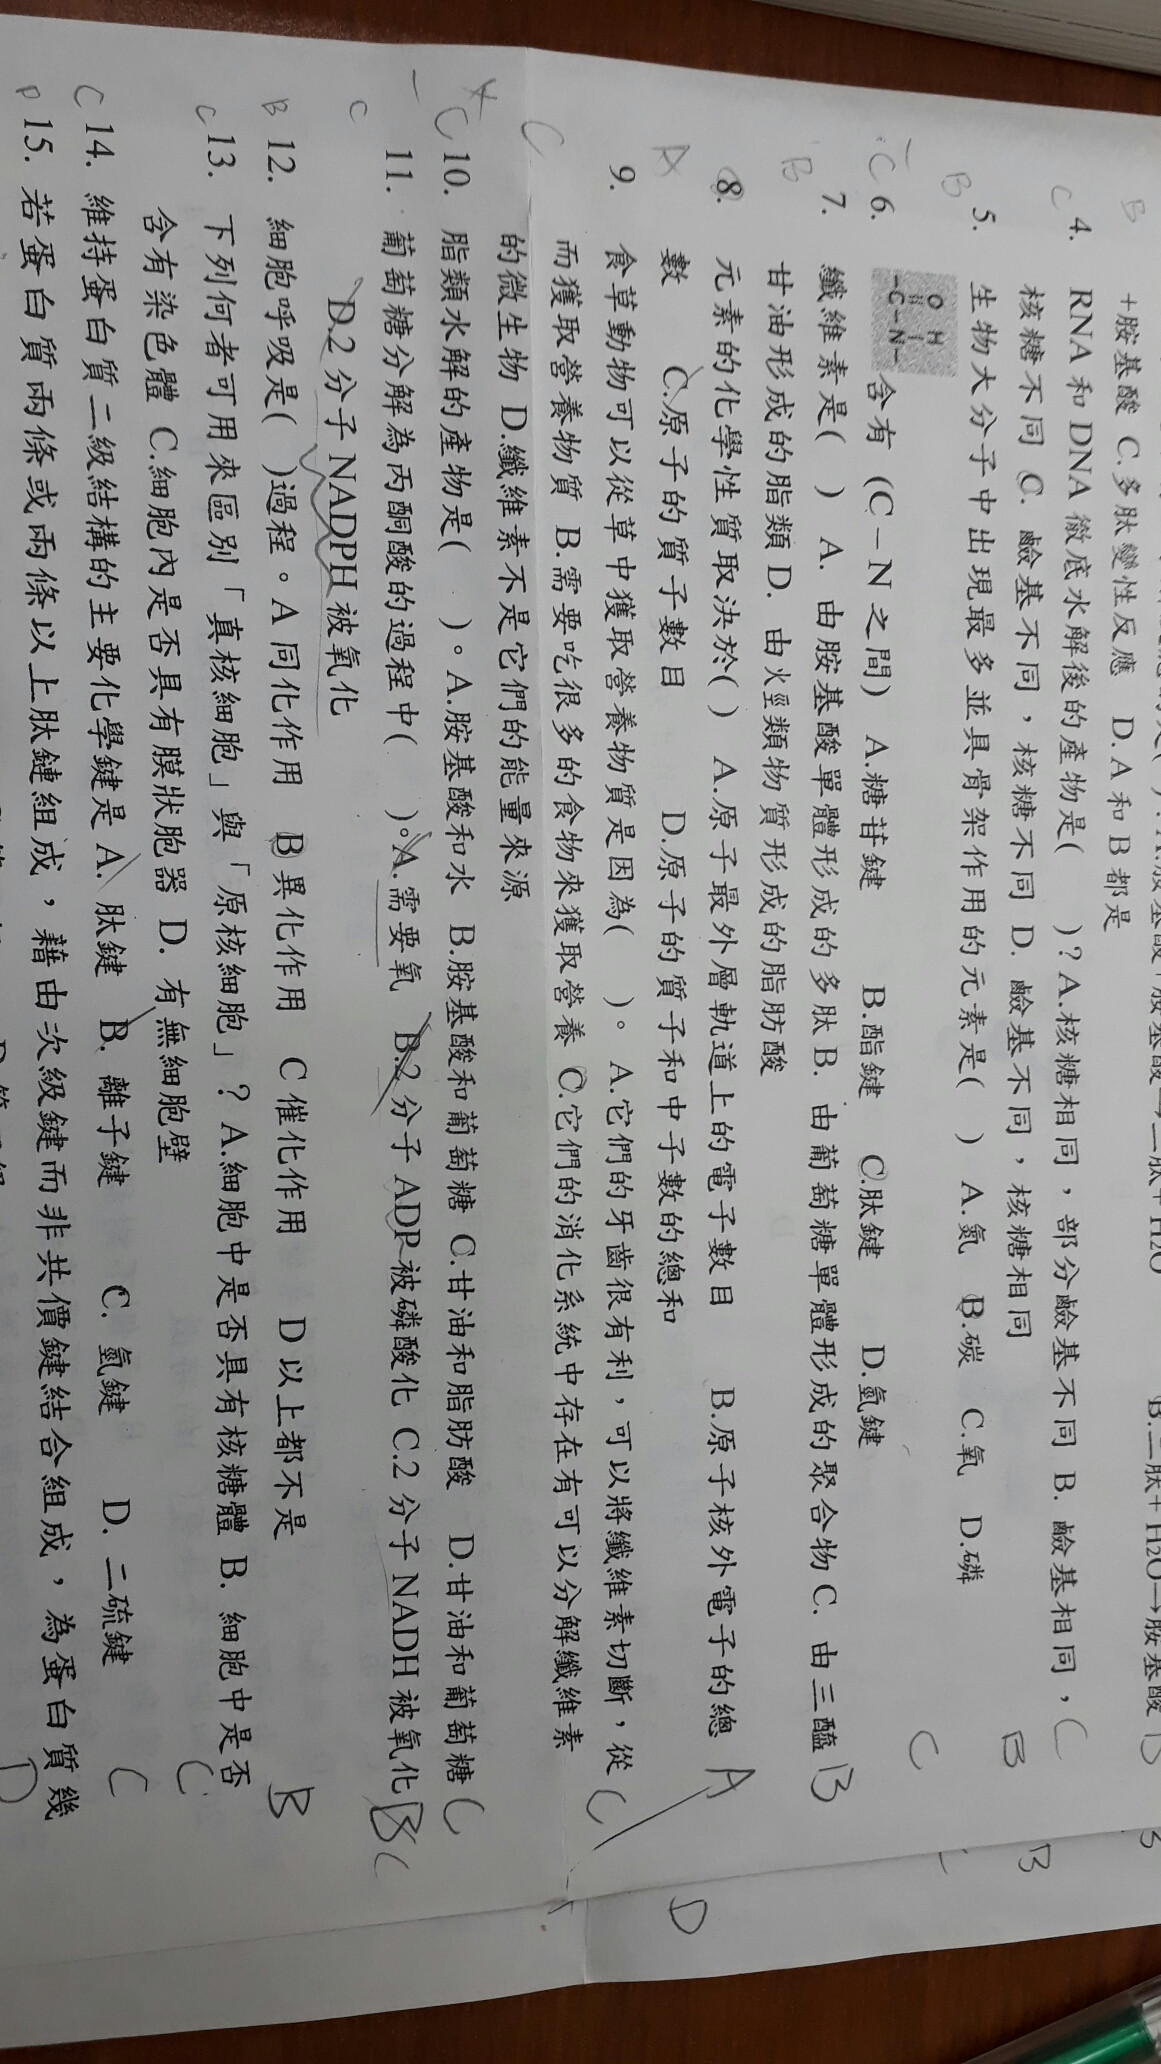 B.二肽+H2O→胺基酸 B
B +胺基酸 C.多肽變性反應 D.A和B都是
C 4. RNA和DNA徹底水解後的產物是( )? A.核糖相同,部分鹼基不同 B. 鹼基相同, C
核糖不同 C. 鹼基不同,核糖不同 D. 鹼基不同,核糖相同
B 5. 生物大分子中出現最多並具骨架作用的元素是( ) A.氮 B.碳 C.氧 D.磷 B B
O H
-C-N-
C 6. 含有 (C-N之間) A.糖苷鍵 B.酯鍵 C.肽鍵 D.氫鍵 C
B 7. 纖維素是( ) A. 由胺基酸單體形成的多肽 B. 由葡萄糖單體形成的聚合物 C. 由三醯 B
甘油形成的脂類 D. 由火煙類物質形成的脂肪酸
A 8. 元素的化學性質取決於( ) A.原子最外層軌道上的電子數目 B.原子核外電子的總 A
數 C.原子的質子數目 D.原子的質子和中子數的總和 D
9. 食草動物可以從草中獲取營養物質是因為( )。 A.它們的牙齒很有利,可以將纖維素切斷,從 C
C 而獲取營養物質 B.需要吃很多的食物來獲取營養 C.它們的消化系統中存在有可以分解纖維素
的微生物 D.纖維素不是它們的能量來源
C 10. 脂類水解的產物是( )。A.胺基酸和水 B.胺基酸和葡萄糖 C.甘油和脂肪酸 D.甘油和葡萄糖 C
11. 葡萄糖分解為丙酮酸的過程中( )。A.需要氧 B.2分子ADP被磷酸化 C.2分子NADH被氧化 B C
C D.2分子NADPH被氧化
B 12. 細胞呼吸是( )過程。A同化作用 B異化作用 C催化作用 D以上都不是 B
C 13. 下列何者可用來區別「真核細胞」與「原核細胞」? A.細胞中是否具有核糖體 B. 細胞中是否 C
含有染色體 C.細胞內是否具有膜狀胞器 D. 有無細胞壁
C 14. 維持蛋白質二級結構的主要化學鍵是 A. 肽鍵 B. 離子鍵 C. 氫鍵 D. 二硫鍵 C
D 15. 若蛋白質兩條或兩條以上肽鏈組成,藉由次級鍵而非共價鍵結合組成,為蛋白質幾 D